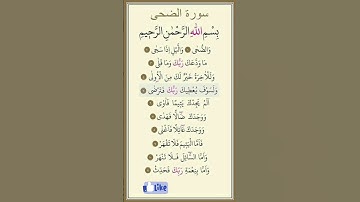 سورة الضحى
بِسْمِ اللهِ الرَّحْمٰنِ الرَّحِيمِ
وَالضُّحَى وَالَّيْلِ إِذَا سَجَى
مَا وَدَّعَكَ رَبُّكَ وَمَا قَلَى
وَلَلْآخِرَةُ خَيْرٌ لَكَ مِنَ الْأُولَى
وَلَسَوْفَ يُعْطِيكَ رَبُّكَ فَتَرْضَى
أَلَمْ يَجِدْكَ يَتِيمًا فَآوَى
وَوَجَدَكَ ضَالًّا فَهَدَى
وَوَجَدَكَ عَائِلًا فَأَغْنَى
فَأَمَّا الْيَتِيمَ فَلَا تَقْهَرْ
وَأَمَّا السَّائِلَ فَلَا تَنْهَرْ
وَأَمَّا بِنِعْمَةِ رَبِّكَ فَحَدِّثْ
Like